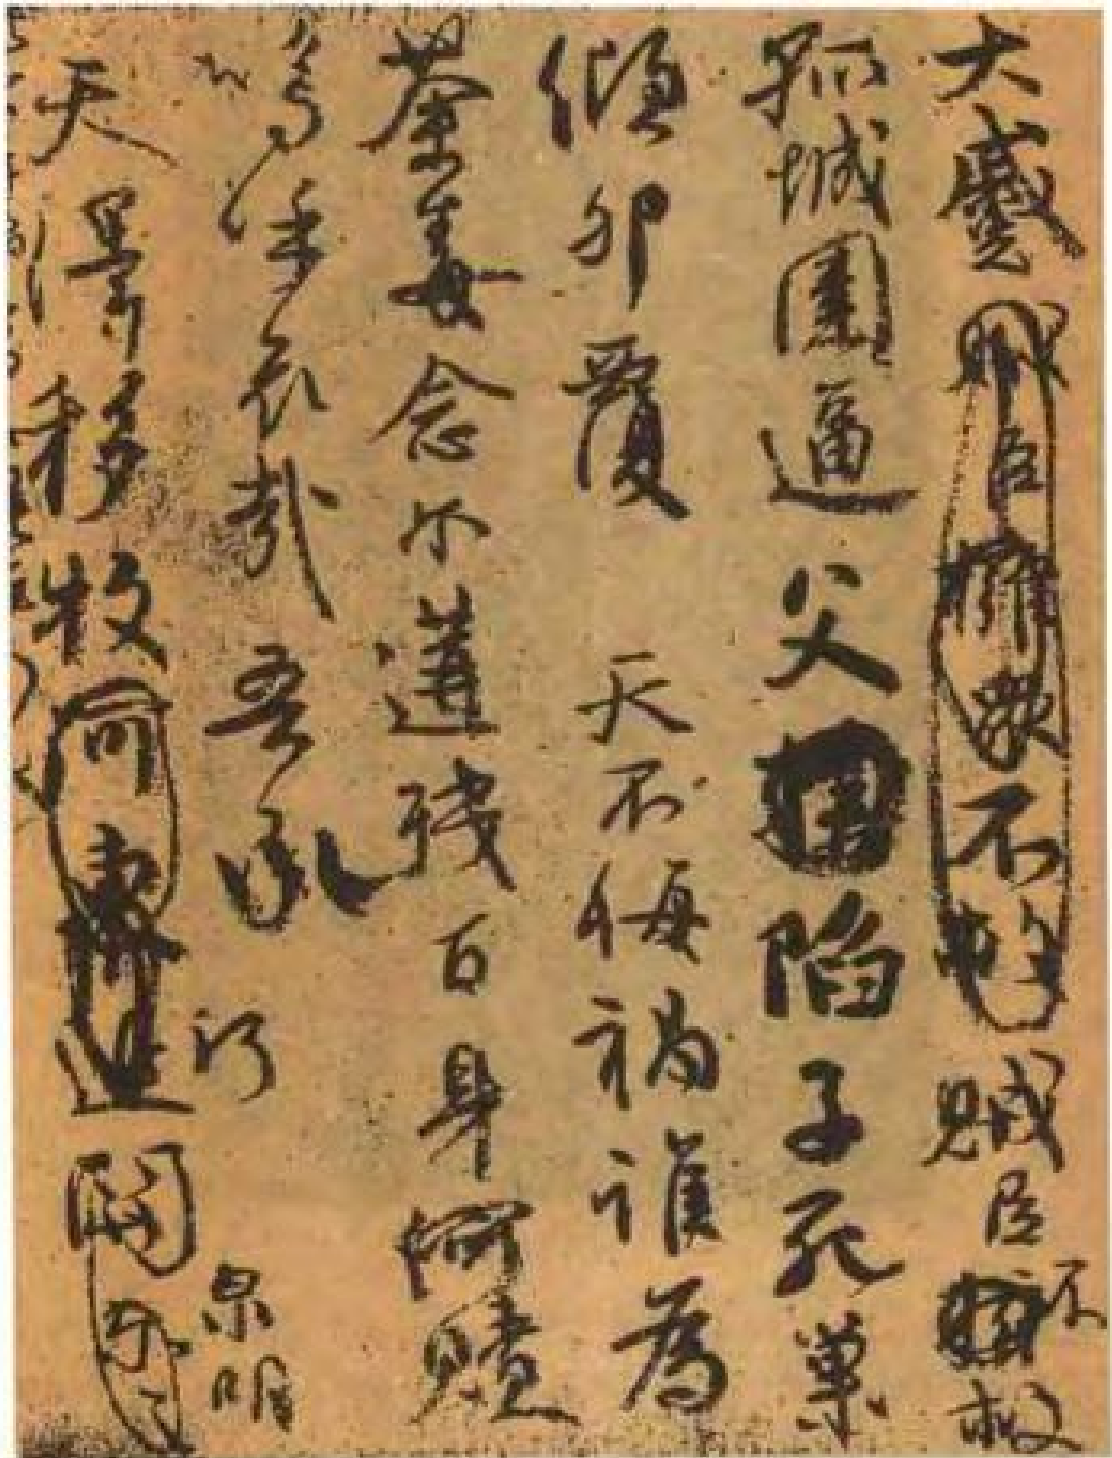 大蹙賊臣擁衆不救賊臣不救
孤城圍逼父陷子死巢
傾卵覆天不悔禍誰為
荼毒念爾遘殘百身何贖
嗚乎哀哉吾承 河 泉明
天澤移牧河東近關爾之